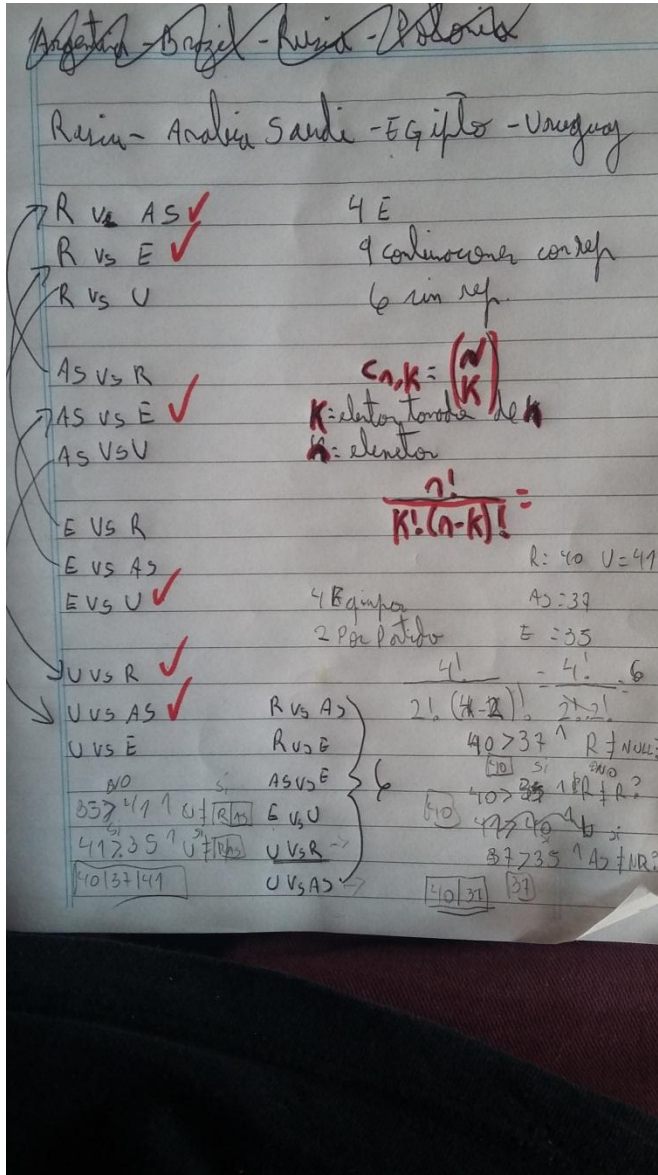 Argentina - Brazil - Rusia - Polonia
Rusia - Arabia Saudi - EGipto - Uruguay
R vs AS ✓
R vs E ✓
R vs U
AS vs R
AS vs E ✓
AS VS U
E VS R
E VS AS
E VS U ✓
U VS R ✓
U VS AS ✓
U VS E
4 E
9 continaciones con rep
6 sin rep.
Cn,K = (N K)
K: elentos tomados de n
n: elenetos
n! / K!.(n-k)! =
R: 40 U=41
AS=37
E =35
4 Equipos
2 Por Partido
4! / 2!.(4-2)! = 4! / 2!.2! = 6
R vs AS
R vs E
AS VS E
E VS U
U VS R ->
U VS AS ->
6
NO SI
35>41 ^ U ≠ R|AS
SI SI
41>35 ^ U ≠ R|AS
40|37|41
40>37 ^ R ≠ NULL?
40 SI NO
40>35 ^ R ≠ R?
40
41>40 ^ U
SI SI
37>35 ^ AS ≠ NR?
40|37 37